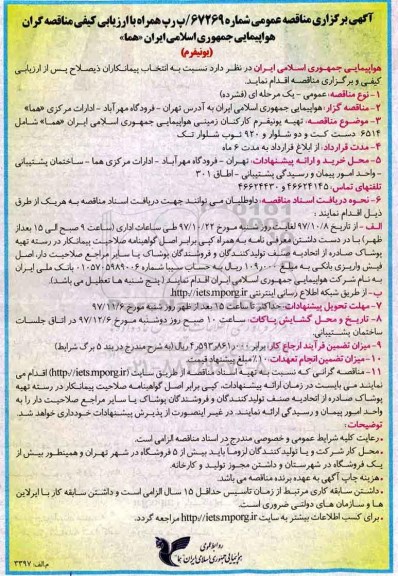 آگهی برگزاری مناقصه عمومی شماره ۶۷۲۶۹/پ رپ همراه با ارزیابی کیفی مناقصه گران
هواپیمایی جمهوری اسلامی ایران «هما»
(یونیفرم)
هواپیمایی جمهوری اسلامی ایران در نظر دارد نسبت به انتخاب پیمانکاران ذیصلاح پس از ارزیابی
کیفی و برگزاری مناقصه اقدام نماید.
۱- نوع مناقصه: عمومی – یک مرحله ای (فشرده)
۲- مناقصه گزار: هواپیمایی جمهوری اسلامی ایران به آدرس تهران – فرودگاه مهرآباد – ادارات مرکزی «هما»
۳- موضوع مناقصه: تهیه یونیفرم کارکنان زمینی هواپیمایی جمهوری اسلامی ایران «هما» شامل
۶۵۱۴ دست کت و دو شلوار و ۹۲۰ ثوب شلوار تک
۴- مدت قرارداد: از ابلاغ قرارداد به مدت ۶ ماه
۵- محل خرید و ارائه پیشنهادات: تهران – فرودگاه مهرآباد – ادارات مرکزی هما – ساختمان پشتیبانی
– واحد امور پیمان و رسیدگی پشتیبانی – اطاق ۳۰۱
تلفنهای تماس: ۴۶۶۲۴۱۴۵ و ۴۶۶۲۴۴۳۰
۶- نحوه دریافت اسناد مناقصه: داوطلبان می توانند جهت دریافت اسناد مناقصه به هریک از طرق
ذیل اقدام نمایند:
الف – از تاریخ ۹۷/۱۰/۸ لغایت روز شنبه مورخ ۹۷/۱۰/۲۲ طی ساعات اداری (ساعت ۹ صبح الی ۱۵ بعداز
ظهر) با در دست داشتن معرفی نامه به همراه کپی برابر اصل گواهینامه صلاحیت پیمانکار در رسته تهیه
پوشاک صادره از اتحادیه صنف تولید کنندگان و فروشندگان پوشاک یا سایر مراجع صلاحیت دار، اصل
فیش واریزی بانکی به مبلغ ۱٫۰۹۰٫۰۰۰ ریال به حساب سیبا شماره ۰۱۰۵۷۰۵۹۸۹۰۰۶ بانک ملی ایران
به نام شرکت هواپیمایی جمهوری اسلامی ایران اقدام نمایند (پنج شنبه ها تعطیل می باشد).
ب- از طریق شبکه اطلاع رسانی اینترنتی http://iets.mporg.ir
۷- مهلت تحویل پیشنهادات: حداکثر تا ساعت ۱۵ بعداز ظهر روز شنبه مورخ ۹۷/۱۱/۶
۸- تاریخ و محل گشایش پاکات: ساعت ۱۰ صبح روز دوشنبه مورخ ۹۷/۱۲/۶ در اتاق جلسات
ساختمان پشتیبانی.
۹- میزان تضمین فرآیند ارجاع کار: برابر ۴٫۵۹۳٫۸۶۱٫۰۰۰ ریال (به شرح مندرج در بند ۵ برگ شرایط)
۱۰- میزان تضمین انجام تعهدات: ۱۰٪ مبلغ پیشنهاد قیمت.
۱۱- مناقصه گرانی که نسبت به تهیه اسناد مناقصه از طریق سایت (http://iets.mporg.ir) اقدام می
نمایند می بایست در زمان ارائه پیشنهادات، کپی برابر اصل گواهینامه صلاحیت پیمانکار در رسته تهیه
پوشاک صادره از اتحادیه صنف تولید کنندگان و فروشندگان پوشاک یا سایر مراجع صلاحیت دار را به
واحد امور پیمان و رسیدگی ارائه نمایند. در غیر اینصورت از پذیرش پیشنهادات خودداری خواهد شد.
توضیحات:
. رعایت کلیه شرایط عمومی و خصوصی مندرج در اسناد مناقصه الزامی است.
. محل کار شرکت و یا تولید کنندگان لزوما باید بیش از ۵ فروشگاه در شهر تهران و همینطور بیش از
یک فروشگاه در شهرستان و داشتن مجوز تولید و کارخانه.
. هزینه چاپ آگهی به عهده برنده مناقصه می باشد.
. داشتن سابقه کاری مرتبط از زمان تاسیس حداقل ۱۵ سال الزامی است و داشتن سابقه کار با ایرلاین
ها و سازمان های دولتی ضروری است.
. برای کسب اطلاعات بیشتر به سایت http://iets.mporg.ir مراجعه گردد.
روابط عمومی
هواپیمایی جمهوری اسلامی ایران "هما"
م الف ۳۳۹۷